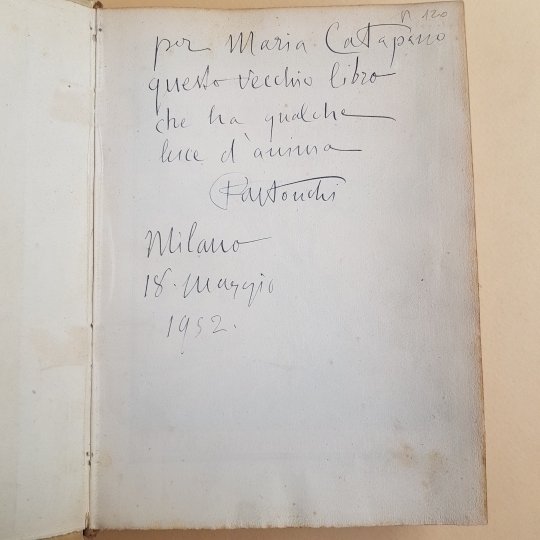 n 120
per Maria Catapano
questo vecchio libro
che ha qualche
luce d'anima
Pastonchi
Milano
18. Maggio
1952.